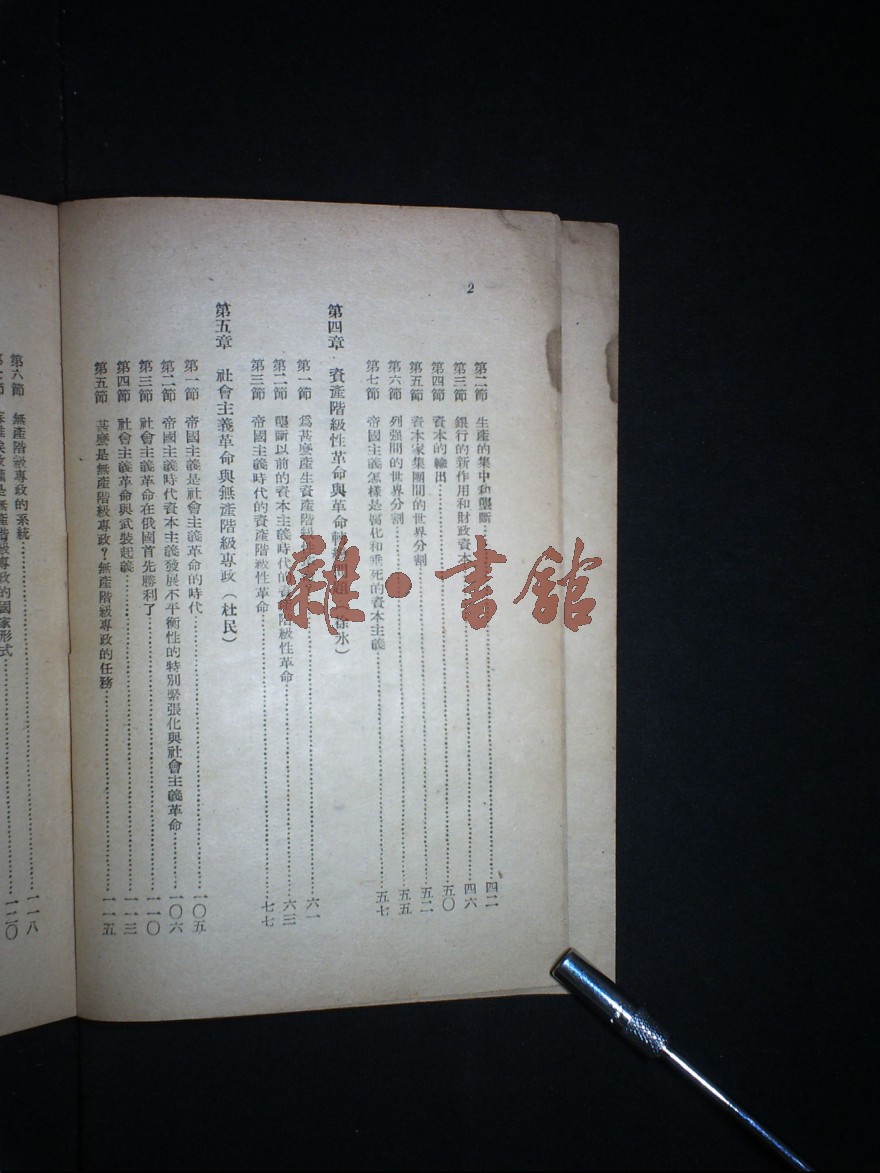 2
第二節 生產的集中和壟斷……四二
第三節 銀行的新作用和財政資本……四六
第四節 資本的輸出……五〇
第五節 資本家集團間的世界分割……五二
第六節 列强間的世界分割……五五
第七節 帝國主義怎樣是腐化和垂死的資本主義……五七
第四章 資產階級性革命與革命轉變問題（徐冰）
第一節 爲甚麽產生資產階級性……六一
第二節 壟斷以前的資本主義時代的資產階級性革命……六三
第三節 帝國主義時代的資產階級性革命……七七
第五章 社會主義革命與無產階級專政（杜民）
第一節 帝國主義是社會主義革命的時代……一〇五
第二節 帝國主義時代資本主義發展不平衡性的特別緊張化與社會主義革命……一〇六
第三節 社會主義革命在俄國首先勝利了……一一〇
第四節 社會主義革命與武裝起義……一一三
第五節 甚麽是無產階級專政？無產階級專政的任務……一一五
第六節 無產階級專政的系統……一一八
第七節 蘇維埃政權是無產階級專政的國家形式……一二〇
雜·書館